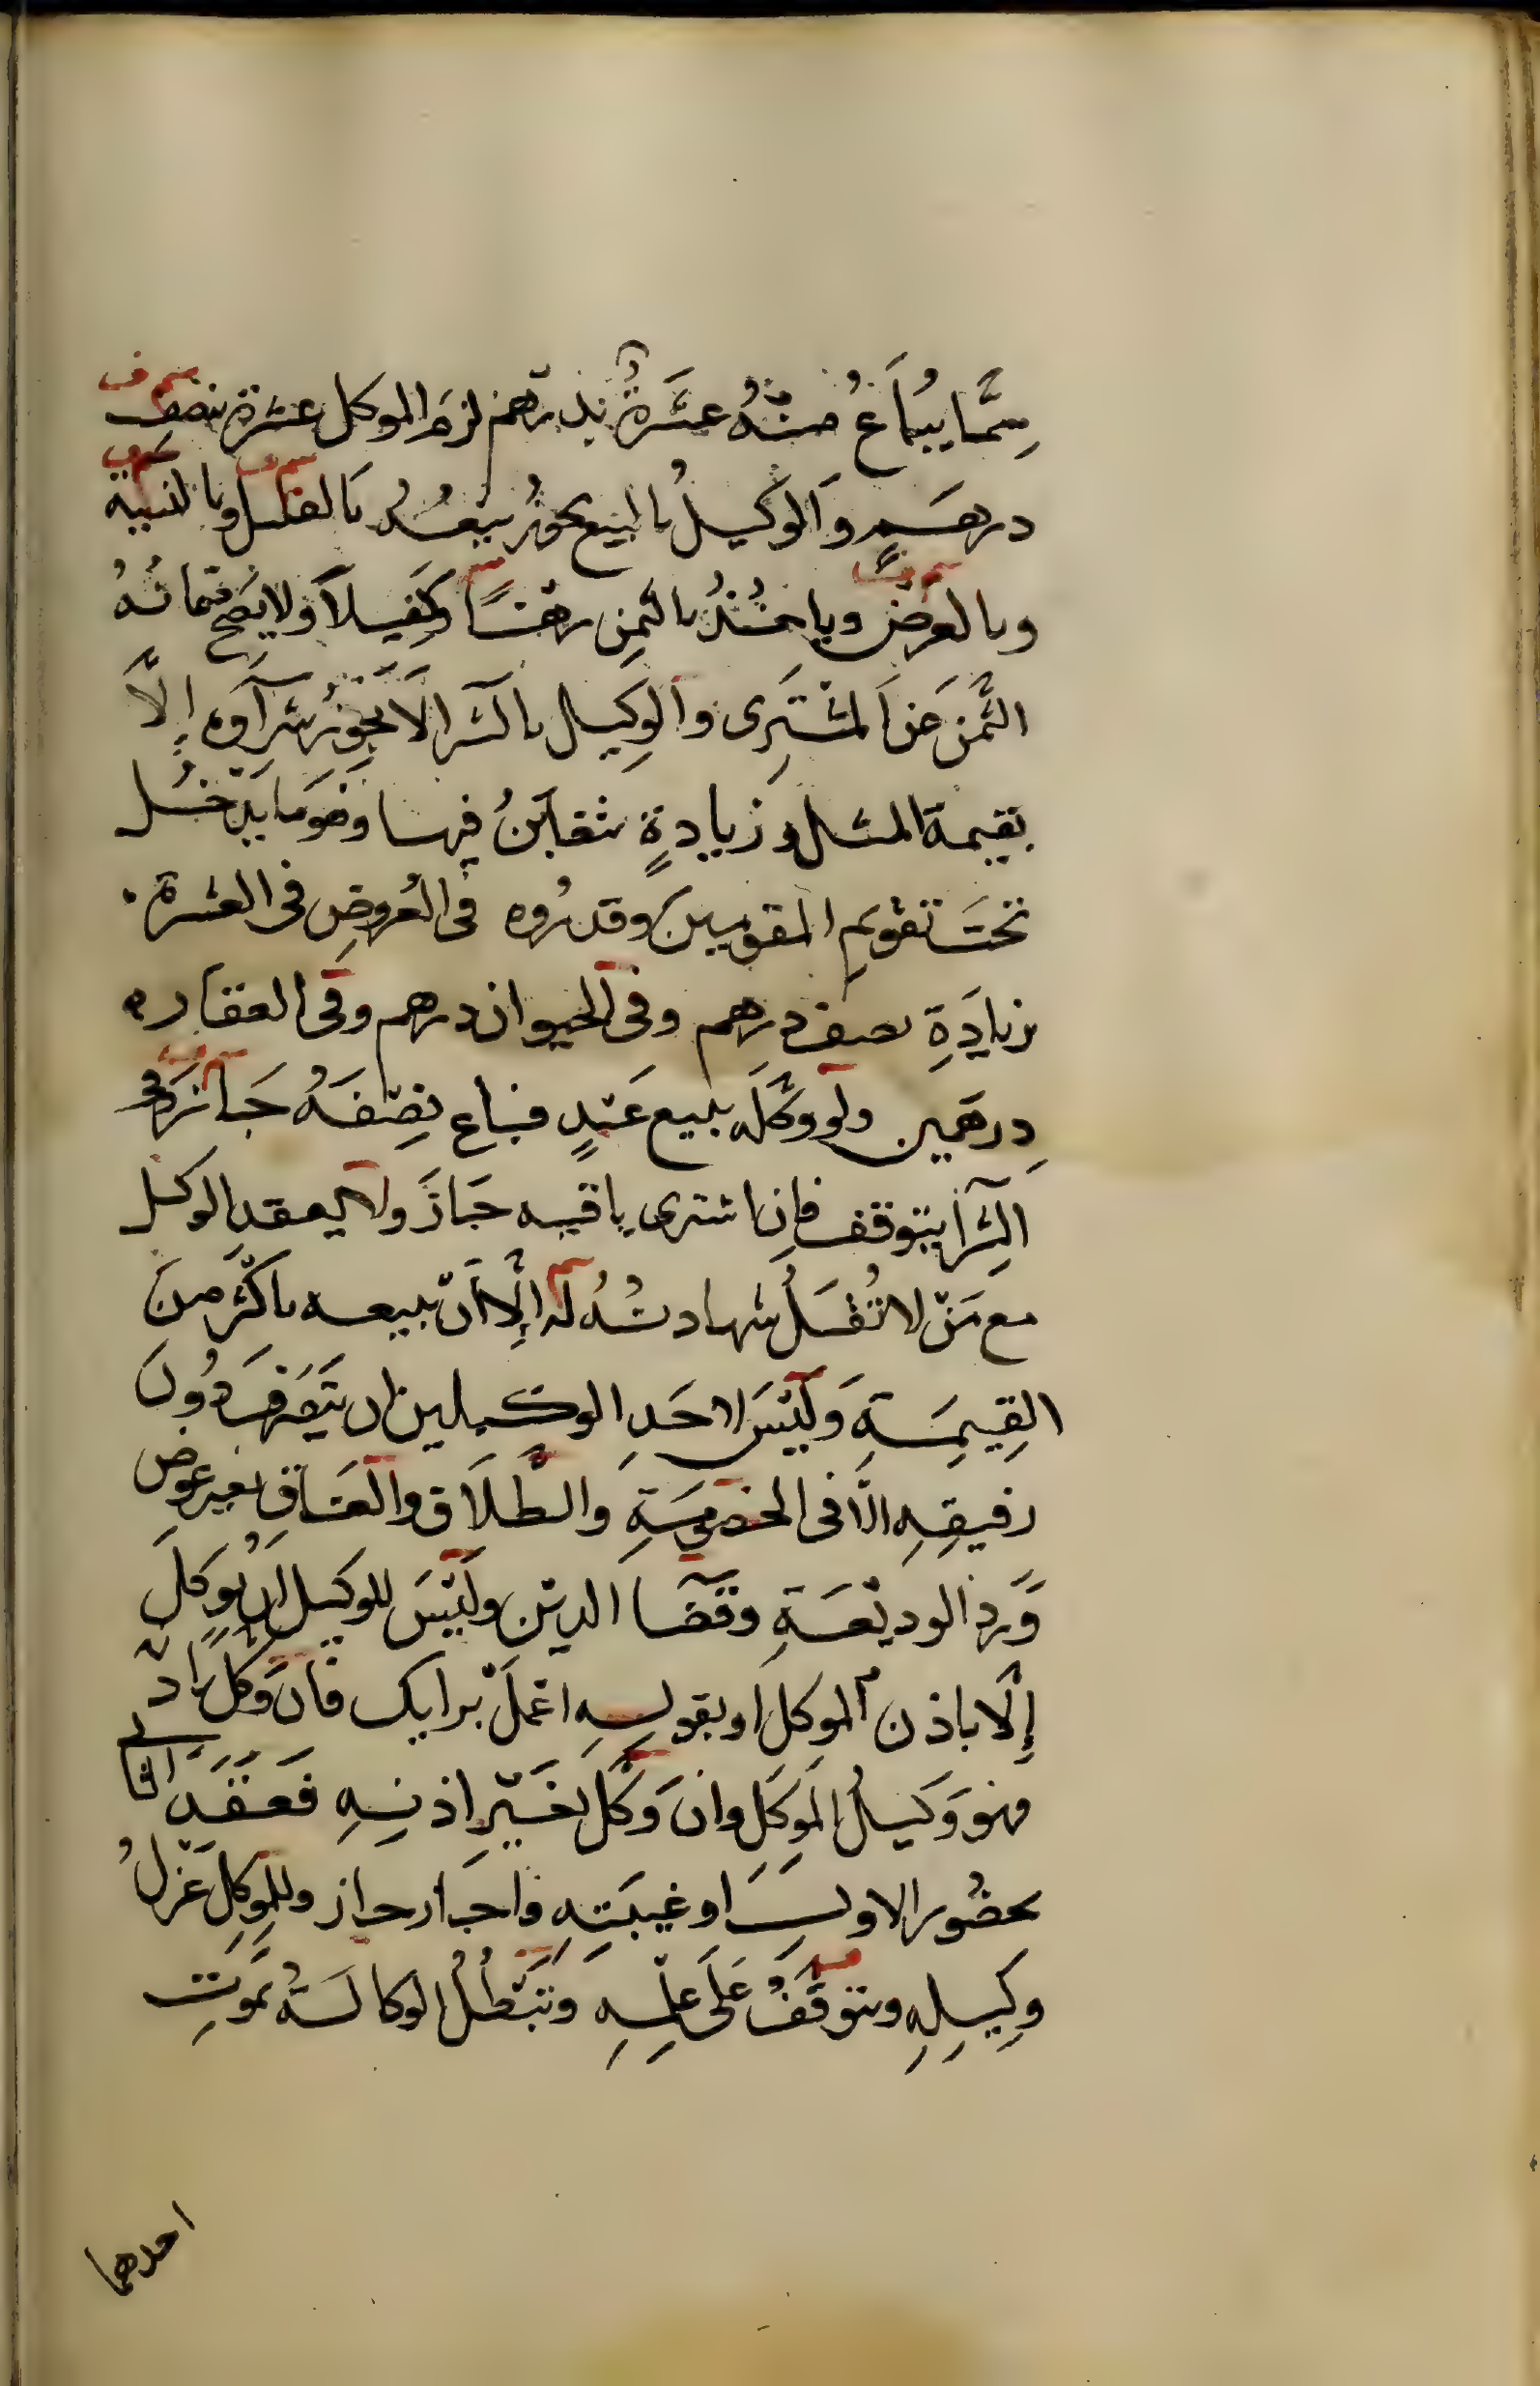 مِمَّا يُبَاعُ مِنْهُ عَشَرَةٌ بدرهم لزم الموكل عشرة بنصف
درهمٍ وَالوكيلُ بالبيع يجوز بيعُهُ بالقليل وبالنسية
وبالعرض وياخُذُ بالثمنِ رهنًا وكَفِيلاً ولا يصح ضمانُهُ
الثَّمنَ عن المشتَرِى والوكِيل بالشرا لا يجوزُ شِرَآوه إلَّا
بقيمة المثل وزيادةٍ يتغابَنُ فيها وهو ما يدخُل
تحتَ تقويم المقومين وقدرُوه فى العُروضِ فى العشرة
بزيادَةِ نصف درهم وفى الحيوان درهم وفى العقاره
دِرهَمين ولو وَكَّلَه ببيع عَبْدٍ فباع نِصْفَهُ جَازَ وفى
الشِّرآ يتوقف فاِن اشترى باقيه جَازَ ولا يعقد الوكيل
مع مَنْ لا تُقْبَلُ شهادتُهُ له إلَّا أنْ يبيعه باكثر مِنَ
القِيمَةِ وَلَيْسَ لاحَدِ الوكيلين ان يتصرفَ دُونَ
رفيقِهِ الَّا فى الخصومَةِ وَالطَّلَاق والعتاقِ بغير عوض
وَردِّ الوديْعَةِ وقضَآ الديْن ولَيْسَ للوكيل ان يُوكلَ
إلَّا باذن الموكل او بقولِهِ اعْمَلْ برايك فان وَكَّل باذن
فهو وَكيلُ المُوكِلِ وان وَكَّل بغَيْرِ اذنِهِ فَعَقَدَ الثانى
بحضُور الاولِ او غيبَتِهِ فاجازَ جاز وللموكِل عَزْلُ
وكِيلِهِ ويتوقَّفُ عَلَى عِلْمِهِ وَتَبْطُلُ الوكالَةُ بمَوتِ
احدهما